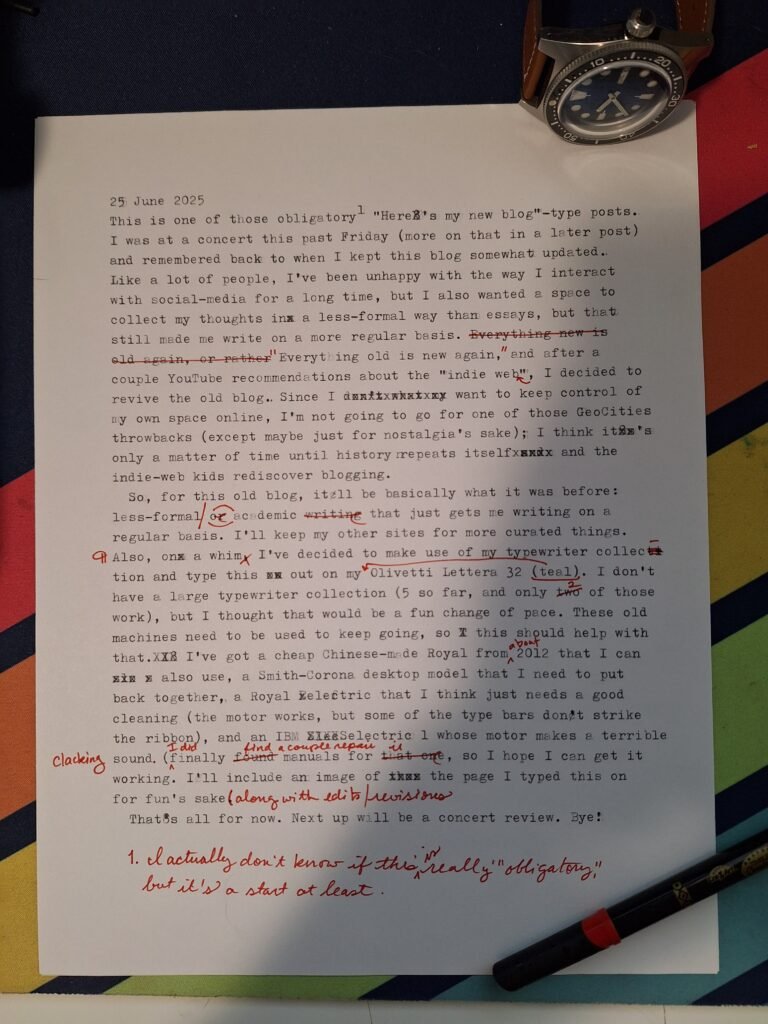 10 20 30
50
25 June 2025
This is one of those obligatory¹ "Here's my new blog"-type posts.
I was at a concert this past Friday (more on that in a later post)
and remembered back to when I kept this blog somewhat updated..
Like a lot of people, I've been unhappy with the way I interact
with social-media for a long time, but I also wanted a space to
collect my thoughts in a less-formal way than essays, but that
still made me write on a more regular basis. Everything new is
old again, or rather "Everything old is new again," and after a
couple YouTube recommendations about the "indie web", I decided to
revive the old blog.. Since I want to keep control of
my own space online, I'm not going to go for one of those GeoCities
throwbacks (except maybe just for nostalgia's sake); I think it's
only a matter of time until history repeats itself and the
indie-web kids rediscover blogging.
So, for this old blog, it'll be basically what it was before:
less-formal/or academic writing that just gets me writing on a
regular basis. I'll keep my other sites for more curated things.
¶ Also, on a whim, I've decided to make use of my typewriter collec-
tion and type this out on my Olivetti Lettera 32 (teal). I don't
have a large typewriter collection (5 so far, and only two 2 of those
work), but I thought that would be a fun change of pace. These old
machines need to be used to keep going, so this should help with
that. I've got a cheap Chinese-made Royal from about 2012 that I can
also use, a Smith-Corona desktop model that I need to put
back together, a Royal electric that I think just needs a good
cleaning (the motor works, but some of the type bars don't strike
the ribbon), and an IBM Selectric 1 whose motor makes a terrible
clacking sound. (I did finally found find a couple repair manuals for that one it, so I hope I can get it
working. I'll include an image of the page I typed this on
for fun's sake (along with edits/revisions
That's all for now. Next up will be a concert review. Bye!
1. I actually don't know if this is really "obligatory,"
but it's a start at least.